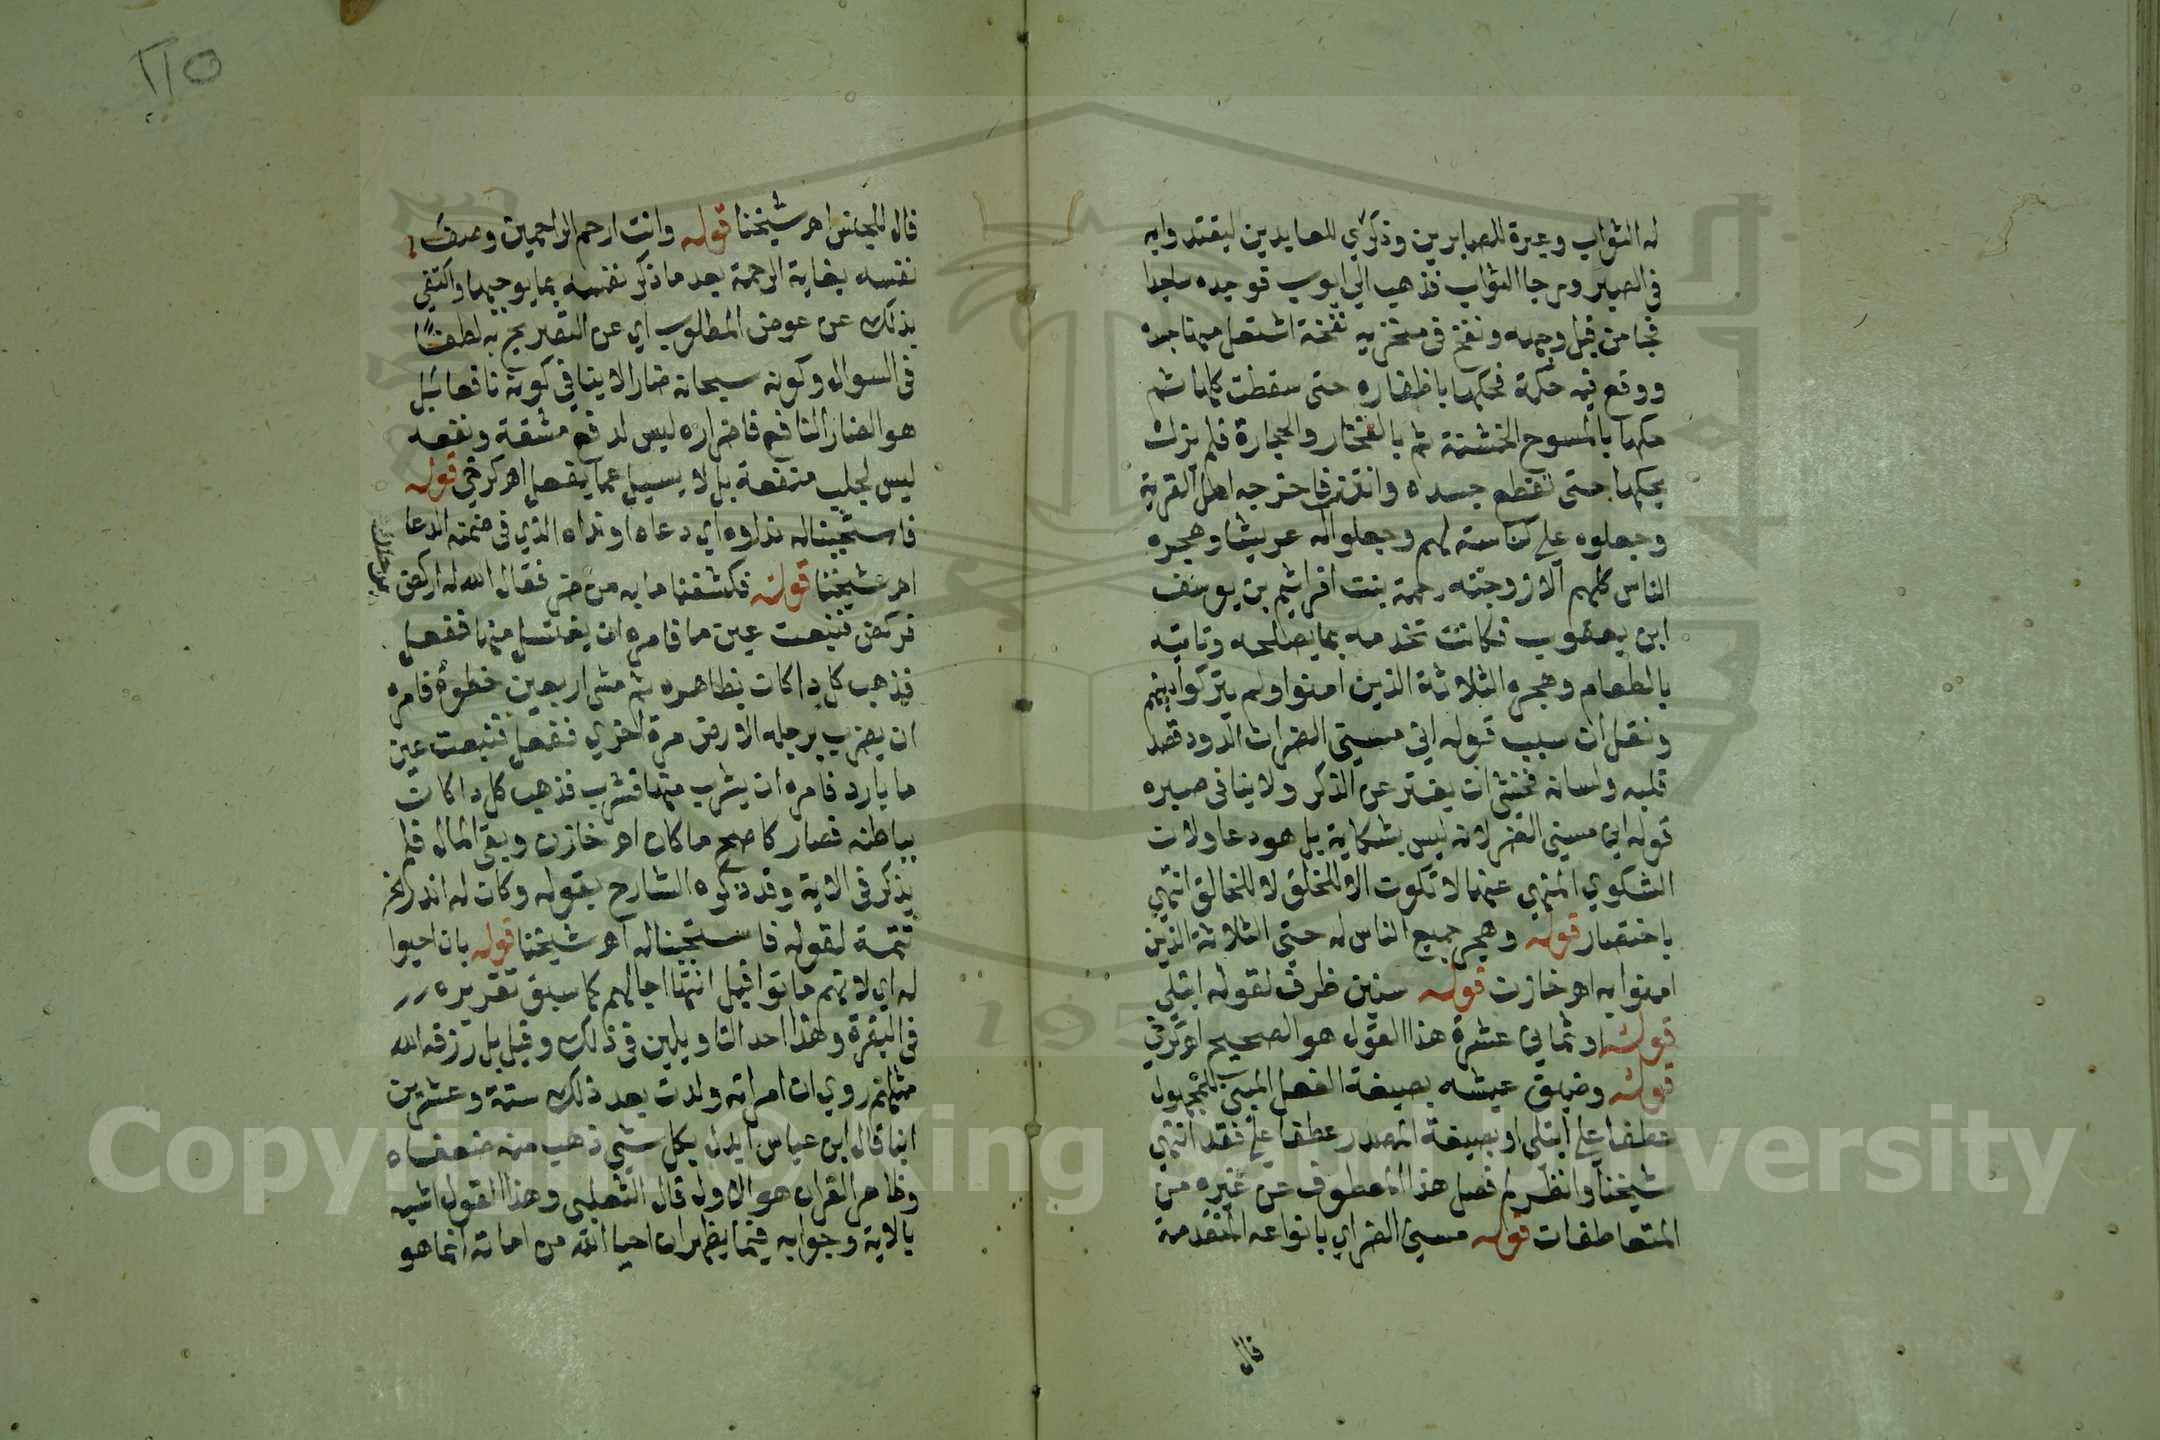 له الثواب وعبرة للصابرين وذكري للعابدين ليقتدوا به
في الصبر ورجا الثواب فذهب الي ايوب فوجده ساجدا
فجا من قبل وجهه ونفخ في منخريه نفخة اشتعل منها جسده
ووقع فيه حكة فحكها باظفاره حتى سقطت كلها ثم
حكها بالمسوح الخشنة ثم بالفخار والحجارة فلم يزل
يحكها حتى تقطع جسده وانتن فاخرجه اهل القرية
وجعلوه على كناسة لهم وجعلوا له عريشا وهجره
الناس كلهم الا زوجته رحمة بنت افراثيم بن يوسف
ابن يعقوب فكانت تخدمه بما يصلحه وتاتيه
بالطعام وهجره الثلاثة الذين امنوا ولم يتركوا دينهم
ونقل ان سبب قوله اني مسني الضر ان الدود قصد
قلبه ولسانه فخشي ان يفتر عن الذكر ولا ينافي صبره
قوله اني مسني الضر لانه ليس بشكاية بل هو دعا ولان
الشكوي المنهي عنها لا تكون الا للخلق لا للخالق انتهي
باختصار قوله وهجر جميع الناس له حتي الثلاثة الذين
امنوا به اهر خازن قوله سنين ظرف لقوله ابتلي
قوله او ثماني عشرة هذا القول هو الصحيح اه كرخي
قوله وضيق عيشه بصيغة الفعل المبني للمجهول
عطفا علي ابتلي او بصيغة المصدر عطفا علي فقد انتهي
شيخنا وانظر لم فصل هذا المعطوف عن غيره من
المتعاطفات قوله مسني الضر اي بانواعه المتقدمة
قال
٢١٥
قال للجنس اهر شيخنا قوله وانت ارحم الراحمين وصف
نفسه بغاية الرحمة بعد ما ذكر نفسه بما يوجبها واكتفي
بذلك عن عوض المطلوب اي عن التصريح به لطفا
في السوال وكونه سبحانه ضارا لا ينافي كونه نافعا بل
هو الضار النافع فاضراره ليس لدفع مشقة ونفعه
ليس لجلب منفعة بل لا يسيل عما يفعل اهر كرخي قوله
فاستجبنا له نداوه اي دعاه او نداه الذي في ضمنه الدعا
اهر شيخنا قوله فكشفنا ما به من ضر فقال الله له اركض
فركض فنبعت عين ما فامره ان يغتسل منها ففعل
فذهب كل دا كان بظاهره ثم مشي اربعين خطوة فامره
ان يضرب برجله الارض مرة اخري ففعل فنبعت عين
ما بارد فامره ان يشرب منها فشرب فذهب كل دا كان
بباطنه فصار كاصح ما كان اهر خازن وبقي المال فلم
يذكر في الاية وقد ذكره الشارح بقوله وكان له اندر الخ
تتمة لقوله فاستجبنا له اهر شيخنا قوله بان احيوا
له اي لانهم ماتوا قبل انتها اجالهم كما سبق تقريره
في البقرة وهذا احد التاويلين في ذلك وقيل بل رزقه الله
مثلهم روي ان امراته ولدت بعد ذلك ستة وعشرين
ابنا قال ابن عباس ابدل بكل شي ذهب منه ضعفاه
وظاهر القران هو الاول قال الثعلبي وهذا القول اشبه
بالاية وجوابه فيما يظهر ان احيا الله من اماته انما هو
Copyright © King Saud University